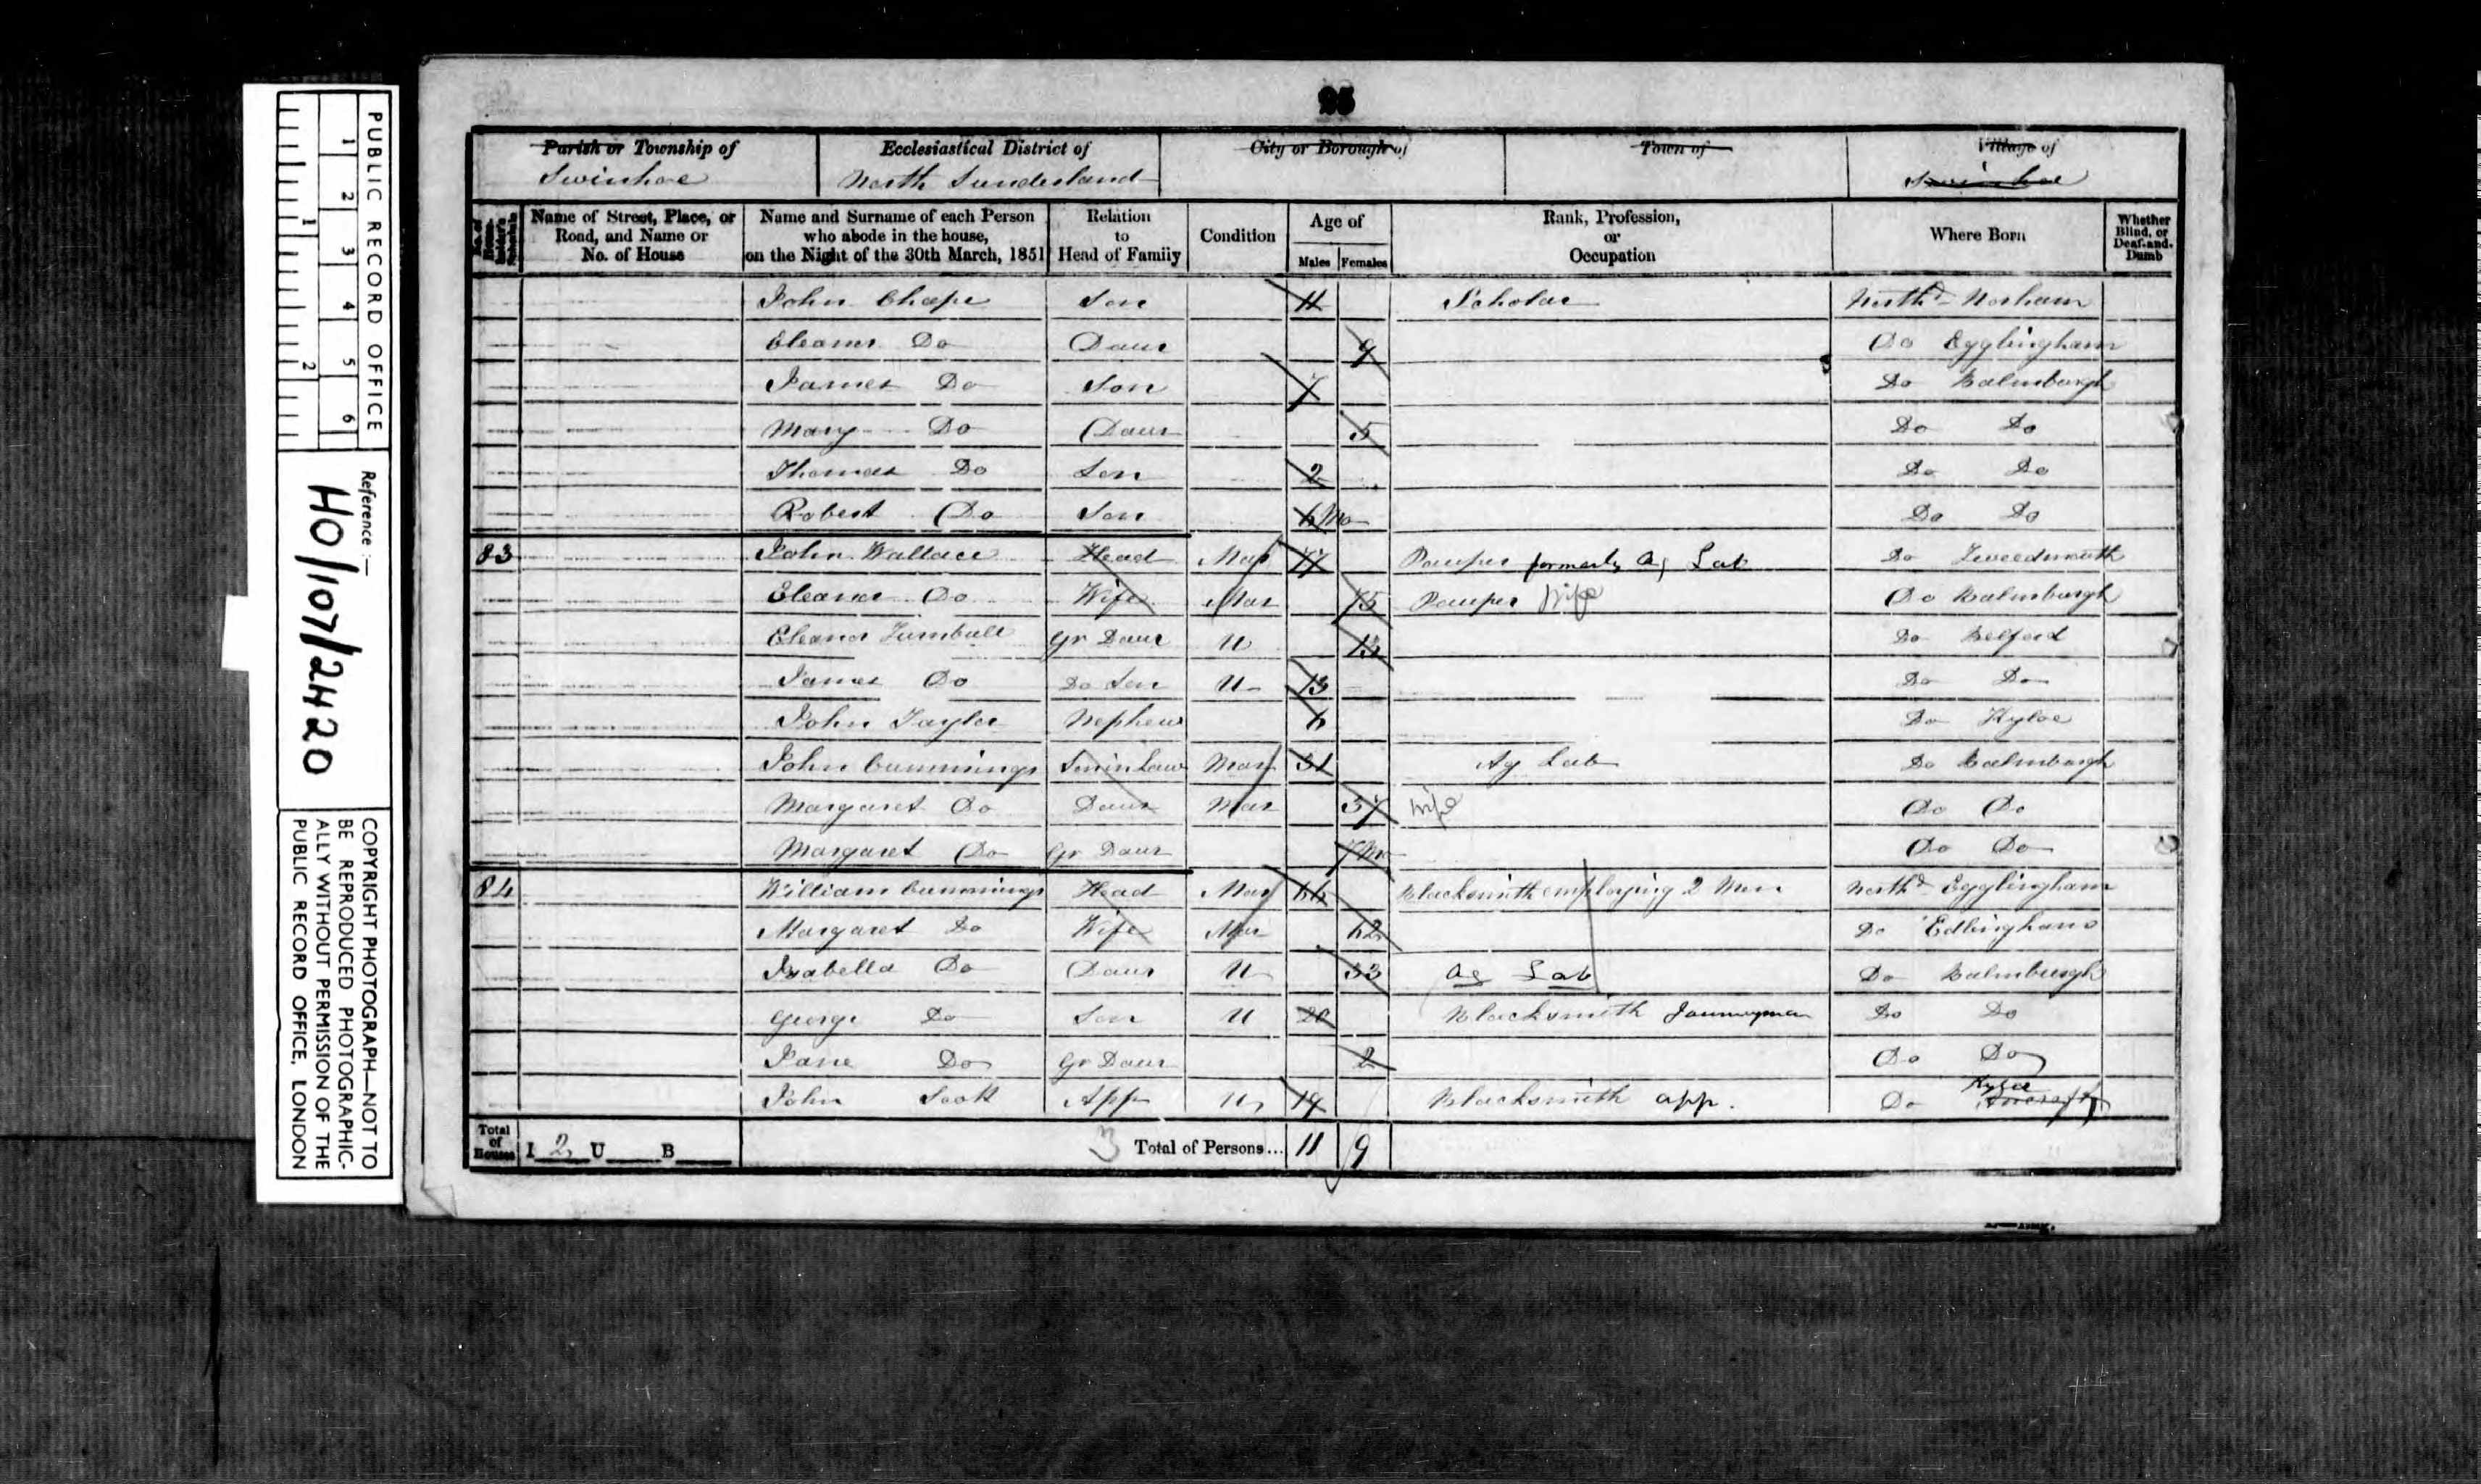 25
Parish or Township of Ecclesiastical District of City or Borough of Town of Village of
Swinhoe North Sunderland Swinhoe
No. of House-holder's Schedule Name of Street, Place, or Road, and Name or No. of House Name and Surname of each Person who abode in the house, on the Night of the 30th March, 1851 Relation to Head of Family Condition Age of Males Females Rank, Profession, or Occupation Where Born Whether Blind, or Deaf-and-Dumb
John Chape Son 11 Scholar Northd Norham
Eleanor Do Daur 9 Do Egglingham
James Do Son 7 Do Balmburgh
Mary Do Daur 5 Do Do
Thomas Do Son 2 Do Do
Robert Do Son 6 Mo Do Do
83 John Wallace Head Mar 77 Pauper formerly Ag Lab Do Tweedmouth
Eleanor Do Wife Mar 75 Pauper Wife Do Balmburgh
Eleanor Turnbull Gr Daur U Do Belford
James Do Do Son U 13 Do Do
John Tayler Nephew 6 Do Kyloe
John Cummings Son in Law Mar 31 Ag Lab Do Balmburgh
Margaret Do Daur Mar 37 Wife Do Do
Margaret Do Gr Daur 7 Mo Do Do
84 William Cummings Head Mar 66 Blacksmith employing 2 Men Northd Egglingham
Margaret Do Wife Mar 62 Do Edlingham
Isabella Do Daur U 33 Ag Lab Do Balmburgh
George Do Son U 20 Blacksmith Journeyman Do Do
Jane Do Gr Daur 2 Do Do
John App U 19 Blacksmith app. Do Kyloe
Total of Houses I 2 U B 3 Total of Persons... 11 9
PUBLIC RECORD OFFICE
1 2 3 4 5 6
1 2
Reference :—
HO/107/2420
COPYRIGHT PHOTOGRAPH—NOT TO
BE REPRODUCED PHOTOGRAPHIC-
ALLY WITHOUT PERMISSION OF THE
PUBLIC RECORD OFFICE, LONDON